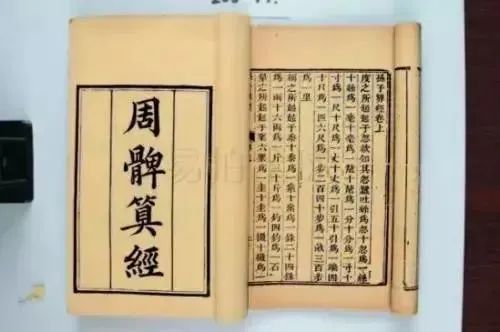 周髀算經
孫子算經卷上
度之所起起于忽欲知其忽蠶吐絲爲忽十忽爲一絲
十絲爲一毫十毫爲一釐十釐爲一分十分爲一寸十
寸爲一尺十尺爲一丈十丈爲一引五十引爲一端四
十尺爲一疋六尺爲一步二百四十步爲一畝三百步
爲一里
稱之所起起于黍十黍爲一絫十絫爲一銖二十四銖
爲一兩十六兩爲一斤三十斤爲一鈞四鈞爲一石
量之所起起于粟六粟爲一圭十圭爲一撮十撮爲一